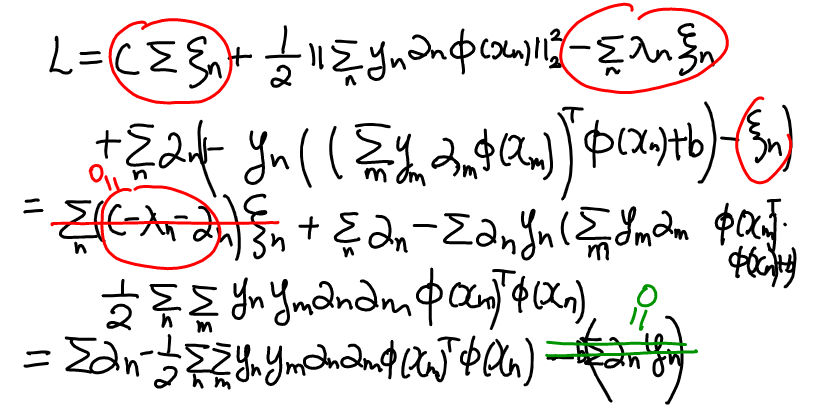 L = C Σ ξn + 1/2 ||Σn yn an φ(xn)||²₂ − Σn λn ξn
+ Σn an(1 − yn((Σm ym am φ(xm))ᵀ φ(xn)+b) − ξn)
0
=
= Σn(C−λn−an)ξn + Σn an − Σ an yn (Σm ym am φ(xm)ᵀ·
φ(xn)+b)
1/2 Σn Σm yn ym an am φ(xm)ᵀφ(xn)
0
=
= Σan − 1/2 Σn Σm yn ym an am φ(xm)ᵀ φ(xn) − b(Σ an yn)